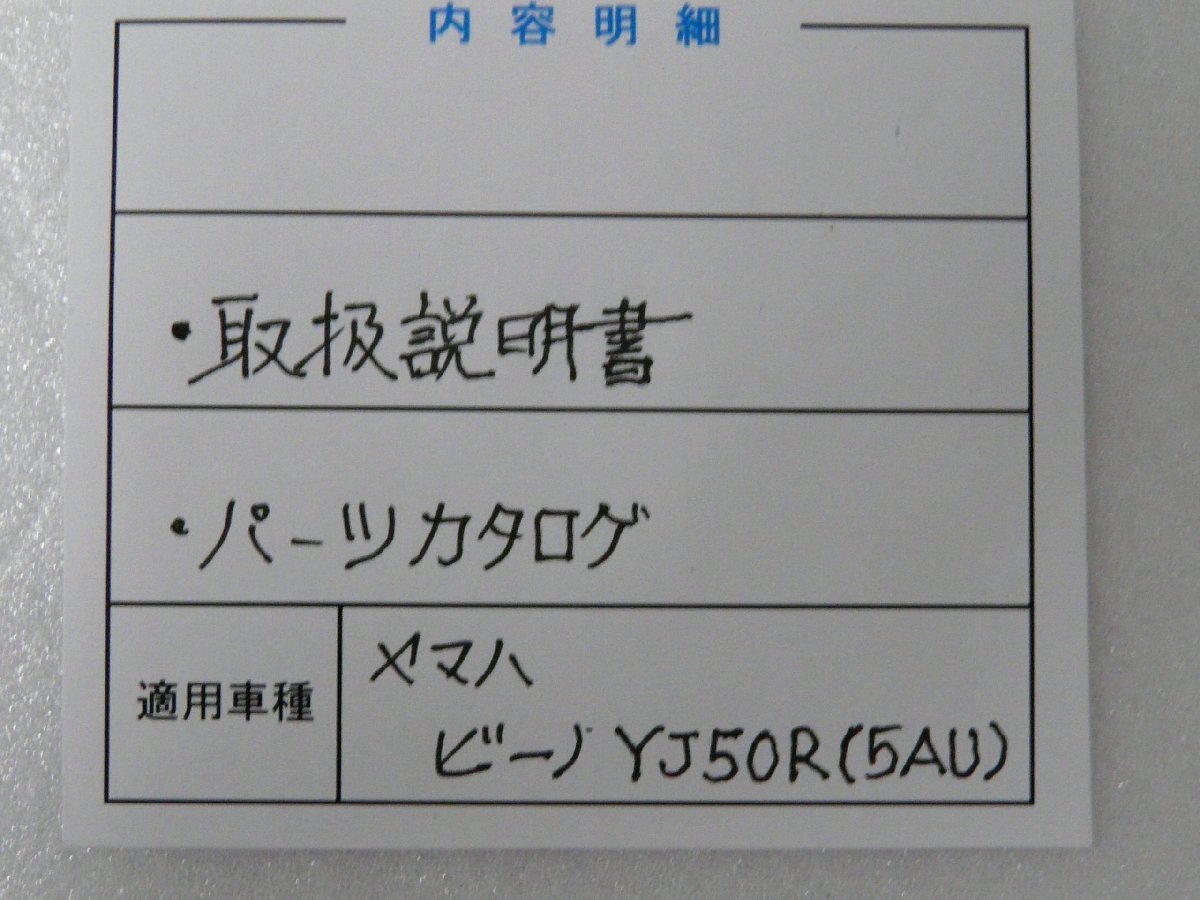 内容明細
・取扱説明書
・パーツカタログ
適用車種
ヤマハ
ビーノ YJ50R(5AU)